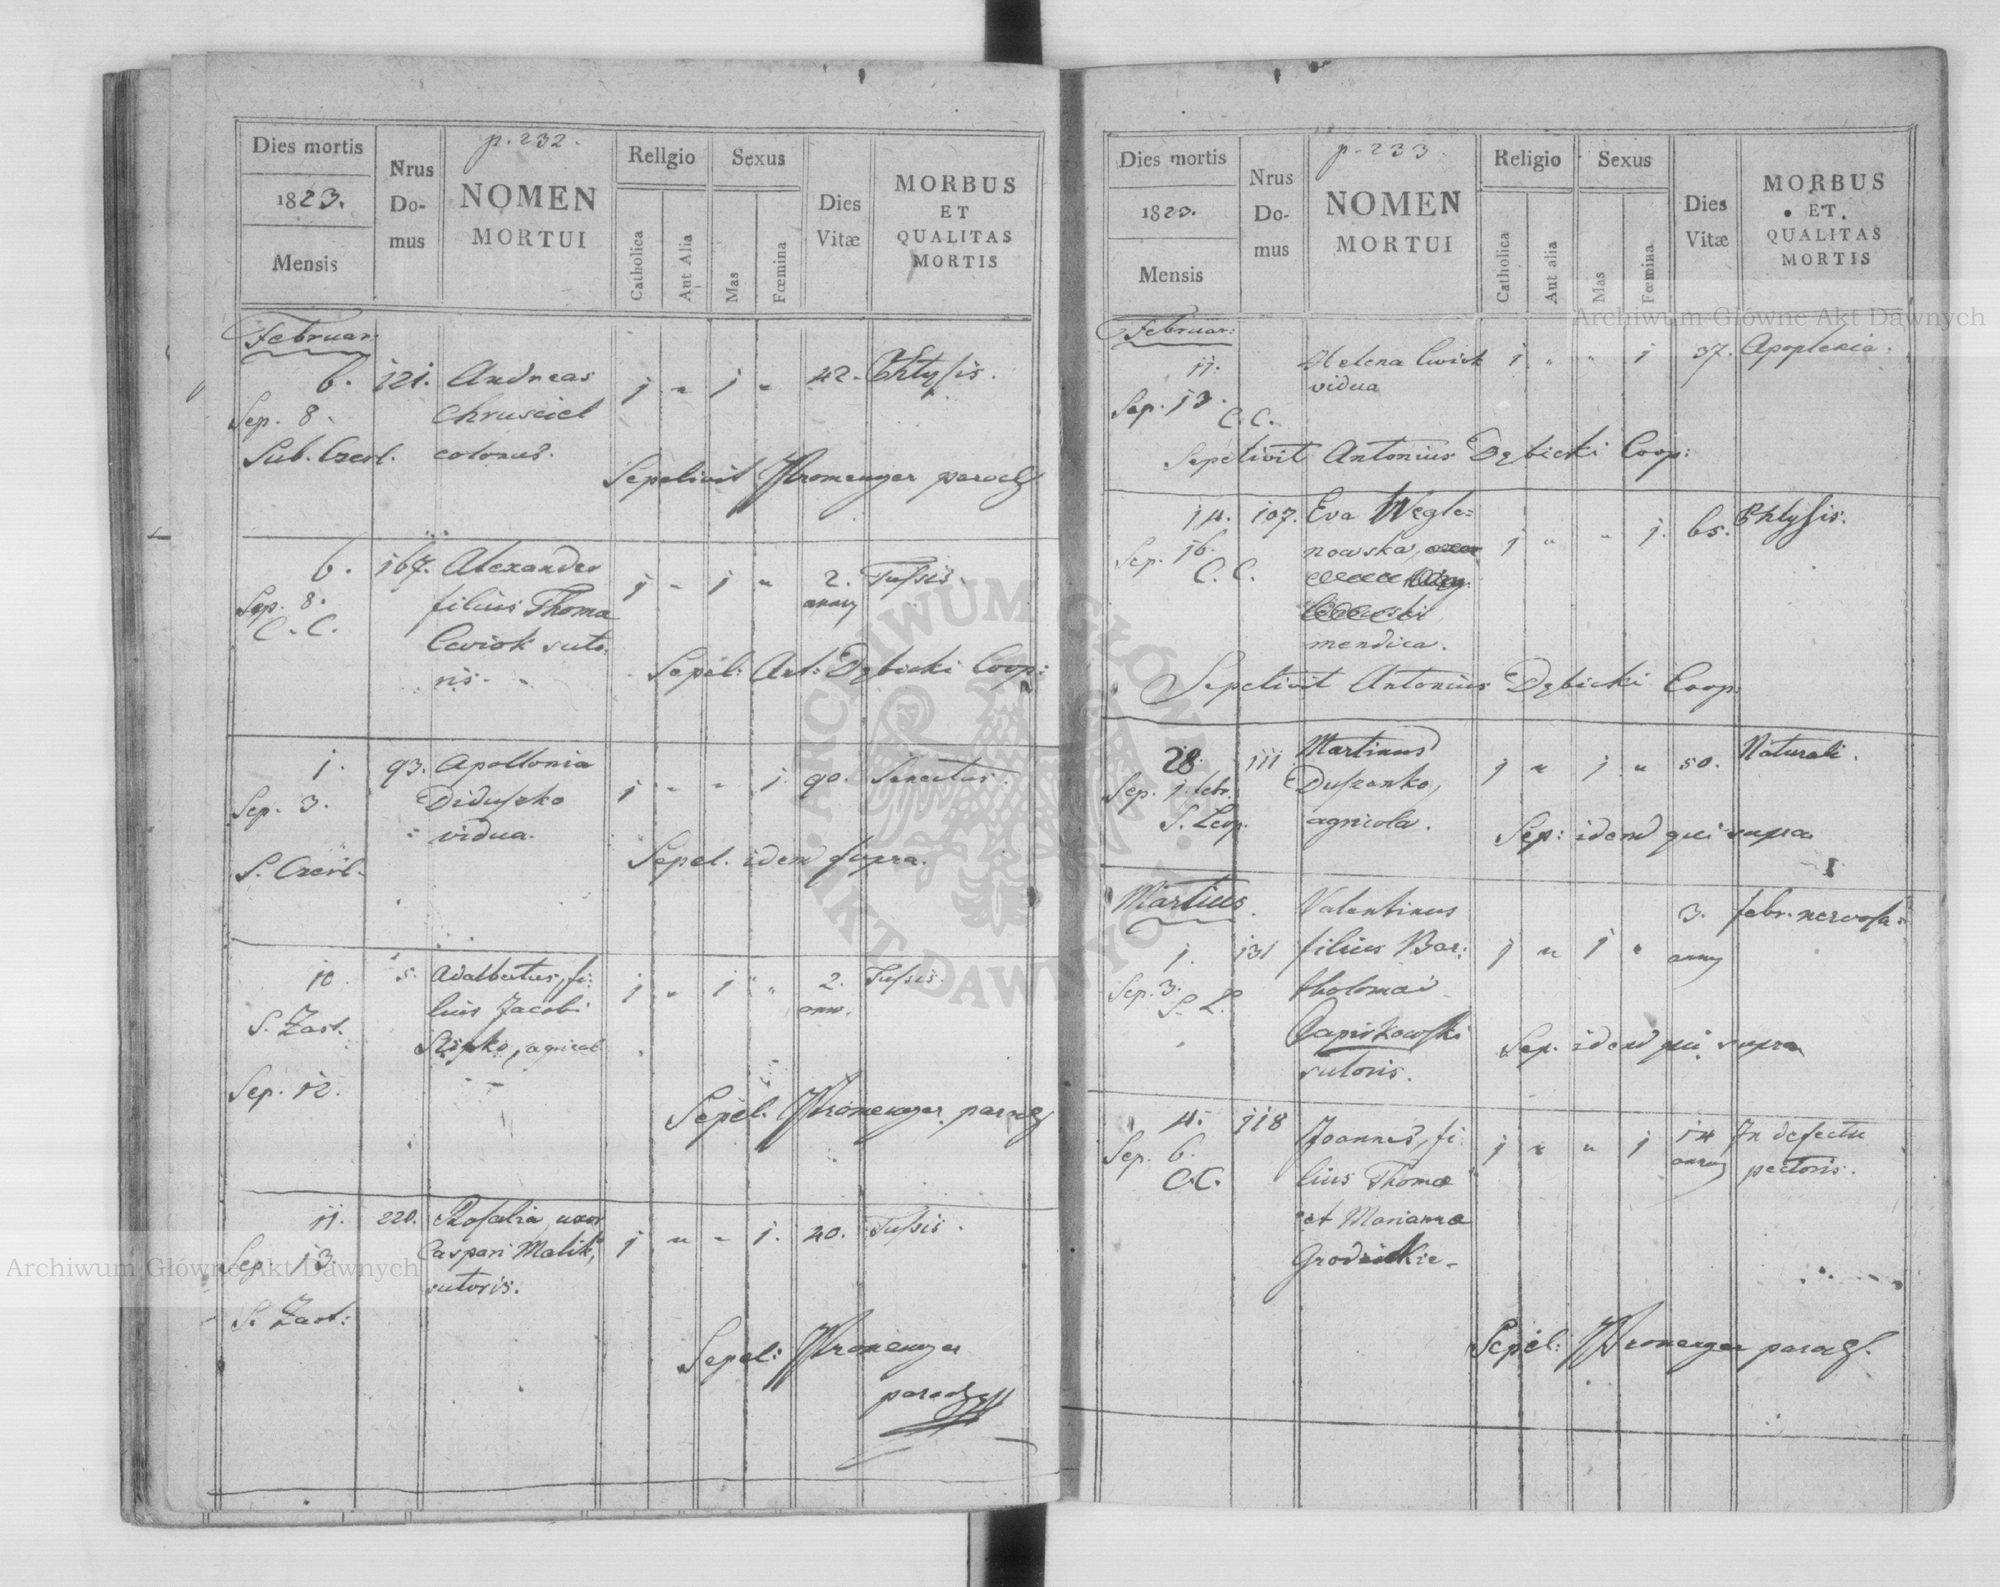 p. 232.
Dies mortis
1823.
Mensis
Nrus
Do-
mus
NOMEN
MORTUI
Rellgio
Catholica
Aut Alia
Sexus
Mas
Fœmina
Dies
Vitæ
MORBUS
ET
QUALITAS
MORTIS
Februar:
6. 121. Andreas 1 " 1 " 42. Phtysis.
Sep. 8. Chrusciel
Sub. Czerl. colonus.
Sepelivit paroch
6. 167. Alexander 1 " 1 " 2. Tussis.
annor
Sep. 8. filius Thoma
C. C. Cwiok suto-
ris.
Sepel: Ant: Dębicki Coop:
1. 93. Apollonia 1 " " 1. 90. Senectus.
Sep. 3. Diduszko
vidua.
S. Czerl.
Sepel. idem supra.
10. 5. Adalbertus, fi- 1 " 1 " 2. Tussis.
ann.
S. Zast. lius Jacobi
agricol
Sep. 12.
Sepel. paroch
11. 220. Rosalia, uxor 1 " " 1. 40. Tussis.
Sep. 13. Caspari Malik,
sutoris.
S. Zast:
Sepel:
paroch
p. 233
Dies mortis
1823.
Mensis
Nrus
Do-
mus
NOMEN
MORTUI
Religio
Catholica
Aut alia
Sexus
Mas
Fœmina
Dies
Vitæ
MORBUS
ET.
QUALITAS
MORTIS
Februar:
11. Helena Cwiok 1 " " 1 37. Apoplexia.
vidua
Sep. 13.
C. C.
Sepelivit Antonius Dębicki Coop:
14. 107. Eva Wegle= 1 " " 1. 65. Phtysis.
Sep. 16. nowska,
C. C.
mendica.
Sepelivit Antonius Dębicki Coop.
28 111 Martinus 1 " 1 " 50. Naturali.
Sep. 1. febr. Duszanko,
S. Leop. agricola.
Sep: idem qui supra
Martius. Valentinus 3. febr. nervosa.
1. 131 filius Bar: 1 " 1 " annor
Sep. 3. tholomæi
S. L.
Papirkowski
sutoris.
Sep. idem qui supra
4. 118 Joannes, fi- 1 " " 1 14 In defectu
Sep. 6. annor pectoris.
C.C. lius Thomæ
et Mariannæ
Grodzickie.
Sepel: paroch.
Archiwum Główne Akt Dawnych
Archiwum Główne Akt Dawnych
ARCHIWUM GŁÓWNE AKT DAWNYCH